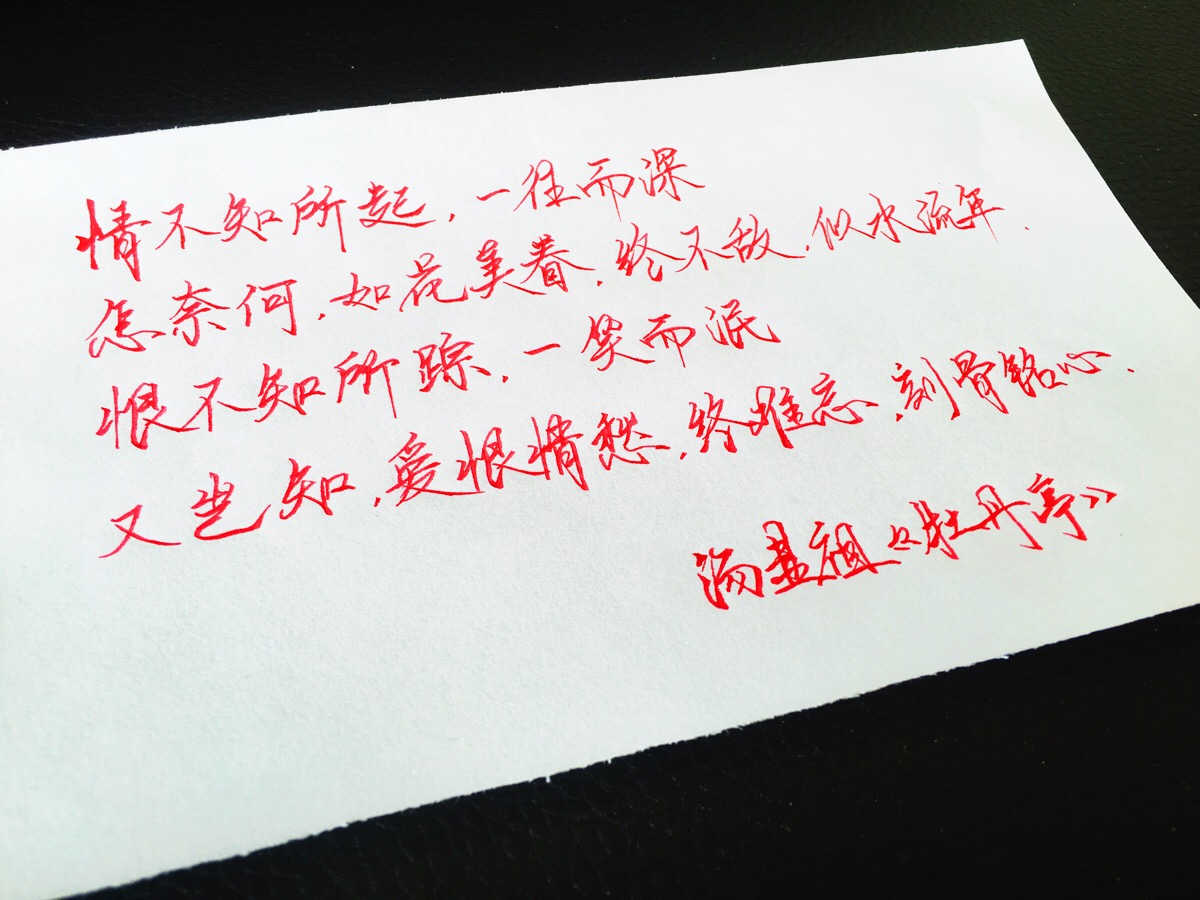 情不知所起，一往而深
怎奈何，如花美眷，终不敌，似水流年．
恨不知所踪，一笑而泯
又岂知，爱恨情愁，终难忘，刻骨铭心．
汤显祖《牡丹亭》